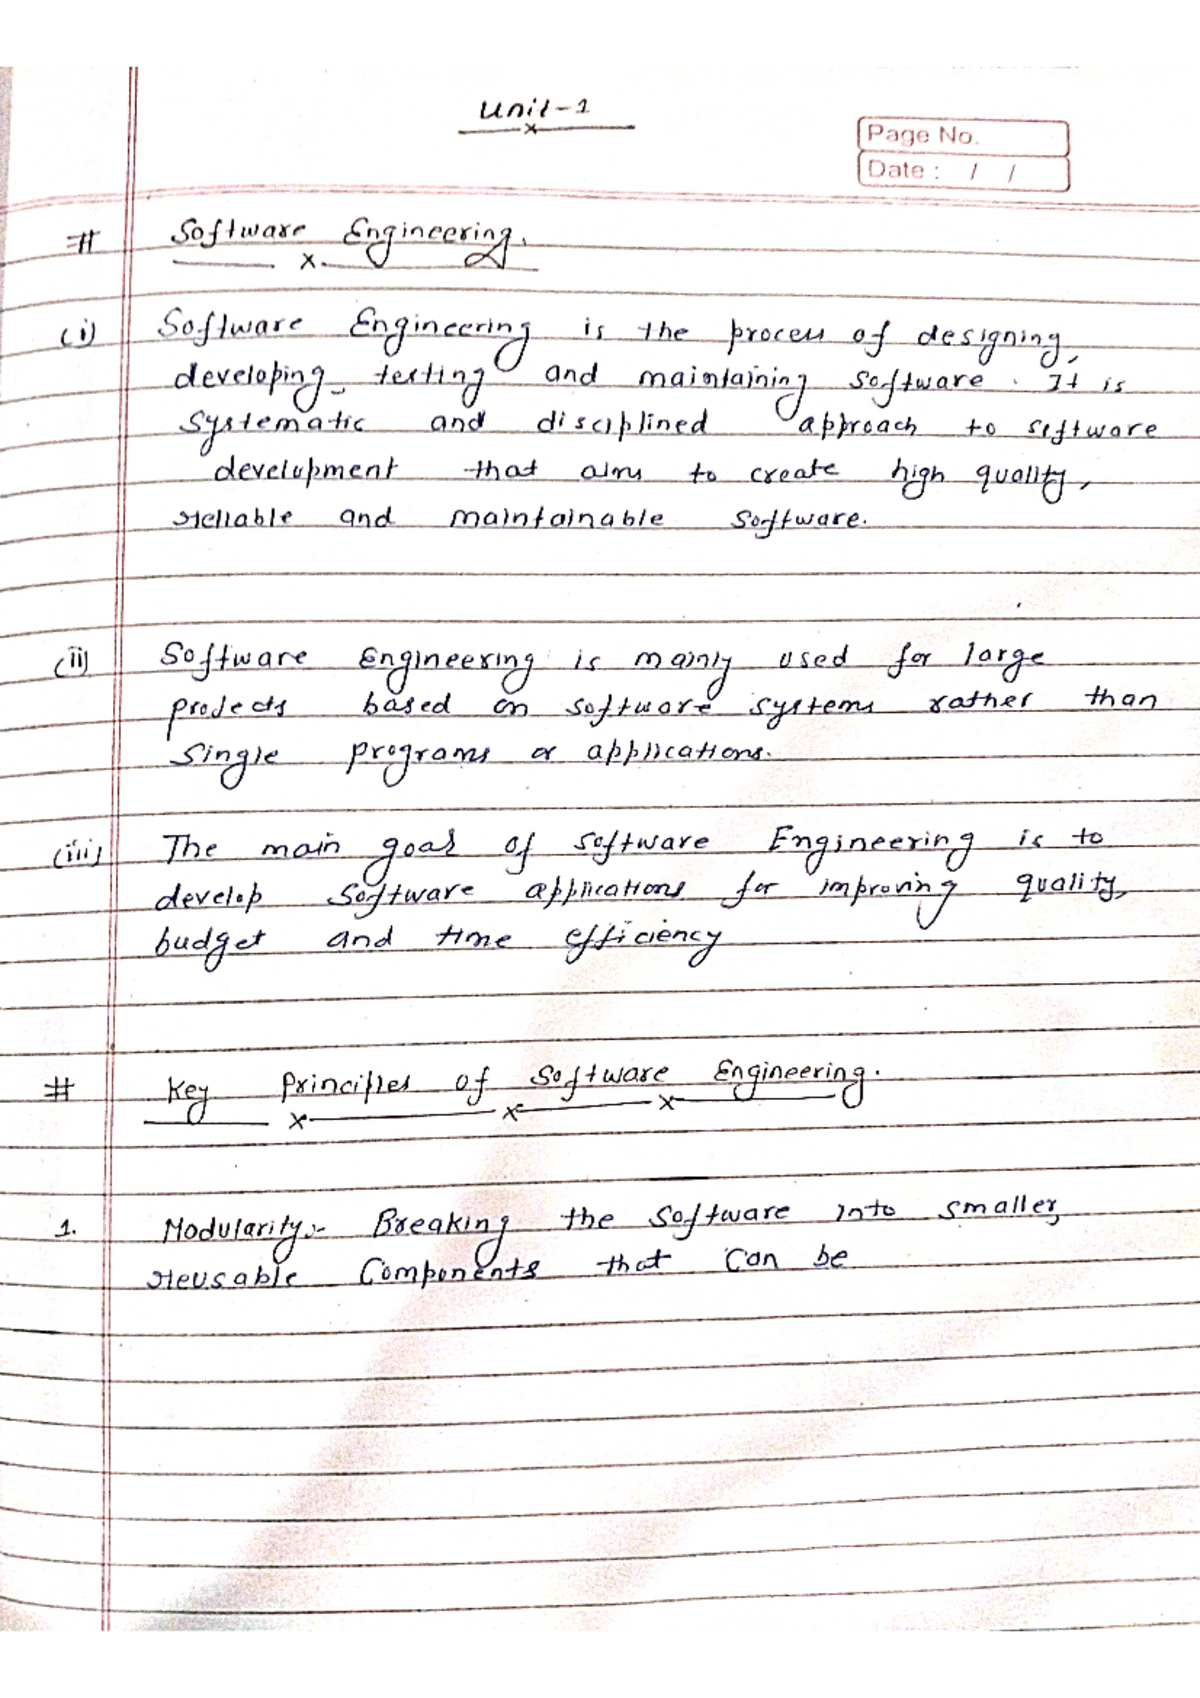 Unit-1
Page No.
Date : / /
# Software Engineering.
(i) Software Engineering is the process of designing,
developing, testing and maintaining software. It is
systematic and disciplined approach to software
development that aims to create high quality,
reliable and maintainable software.
(ii) Software Engineering is mainly used for large
projects based on software systems rather than
single programs or applications.
(iii) The main goal of software Engineering is to
develop software applications for improving quality,
budget and time efficiency
# Key Principles of Software Engineering.
1. Modularity:- Breaking the software into smaller,
reusable Components that Can be